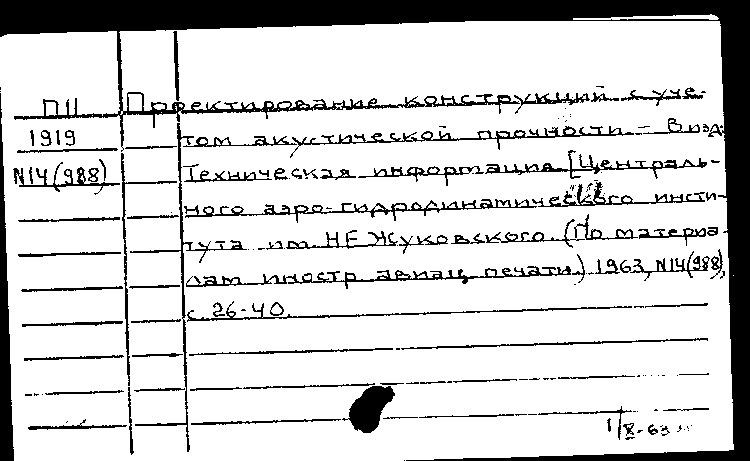 П11 Проектирование конструкций с уче-
1919 том акустической прочности. – В изд:
N14(988) Техническая информация [Централь-
ного аэро-гидродинамического инсти-
тута им. НЕ Жуковского. (По материа-
лам иностр авиац. печати.) 1963, N14(988),
с. 26-40.
1/X-63